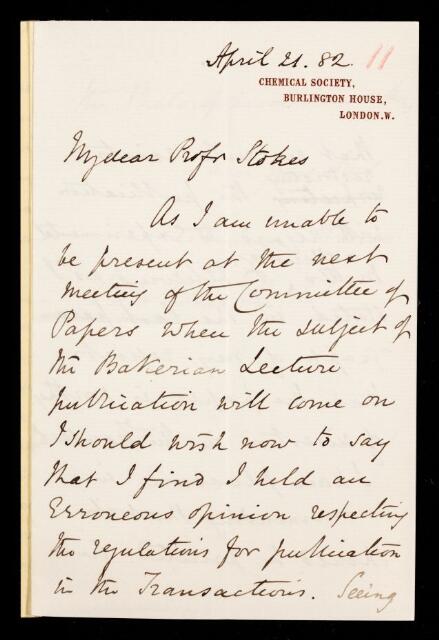 April 21. 82. 11
CHEMICAL SOCIETY,
BURLINGTON HOUSE,
LONDON.W.
My dear Profr Stokes
As I am unable to
be present at the next
meeting of the Committee of
Papers when the subject of
the Bakerian Lecture
publication will come on
I should wish now to say
that I find I held an
Erroneous opinion respecting
the regulations for publication
in the Transactions. Seeing